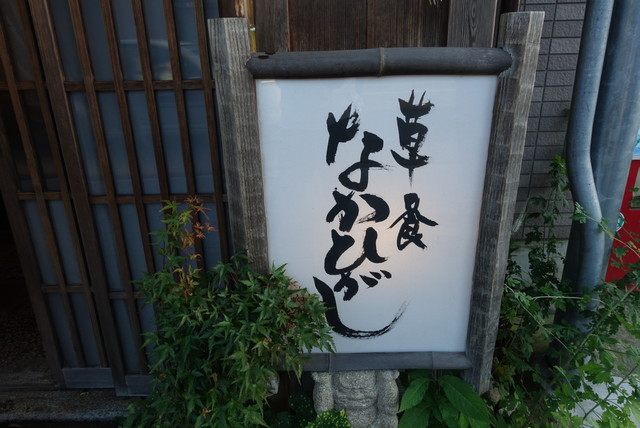 草食
なかひがし